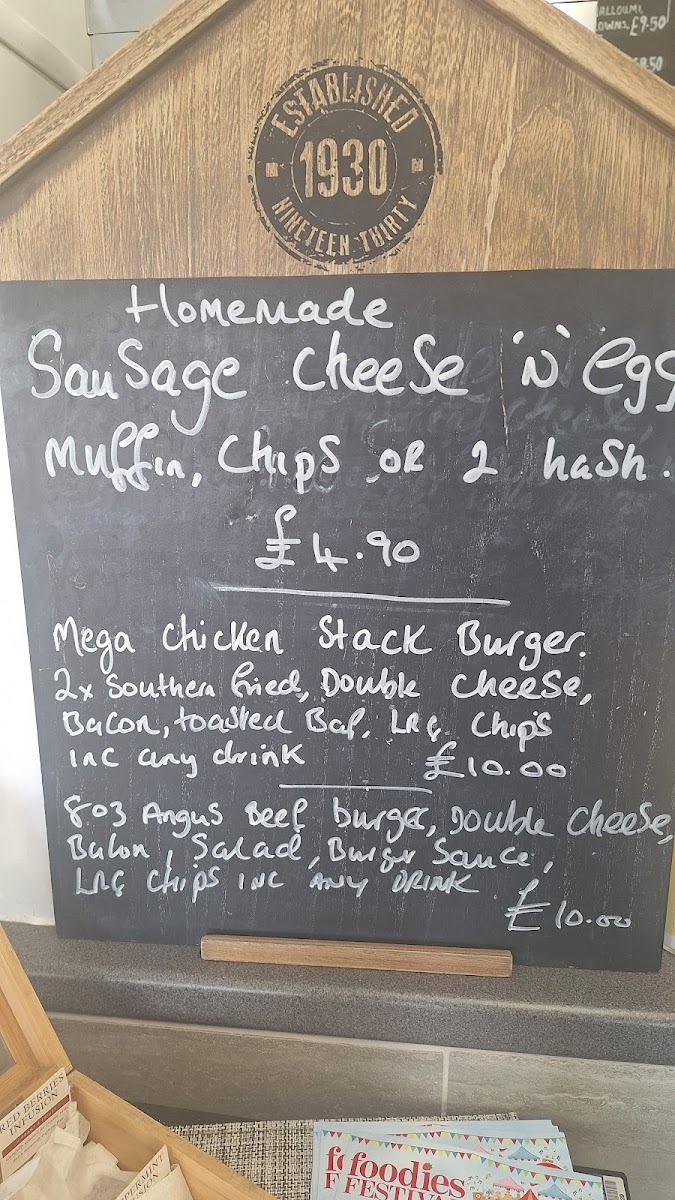 ALLOUMI
OWNS. £9.50
£8.50
ESTABLISHED
1930
NINETEEN THIRTY
Homemade
Sausage Cheese 'N' egg
Muffin, Chips OR 2 hash.
£4.90
Mega Chicken Stack Burger.
2x Southern fried, Double Cheese,
Bacon, toasted Bap, LRG. Chips
INC any drink £10.00
8oz Angus Beef burger, Double Cheese,
Bacon, Salad, Burger Sauce,
LRG Chips INC ANY DRINK
£10.00
RED BERRIES
INFUSION
PERMINT
INFUSION
foodies
FESTIVAL